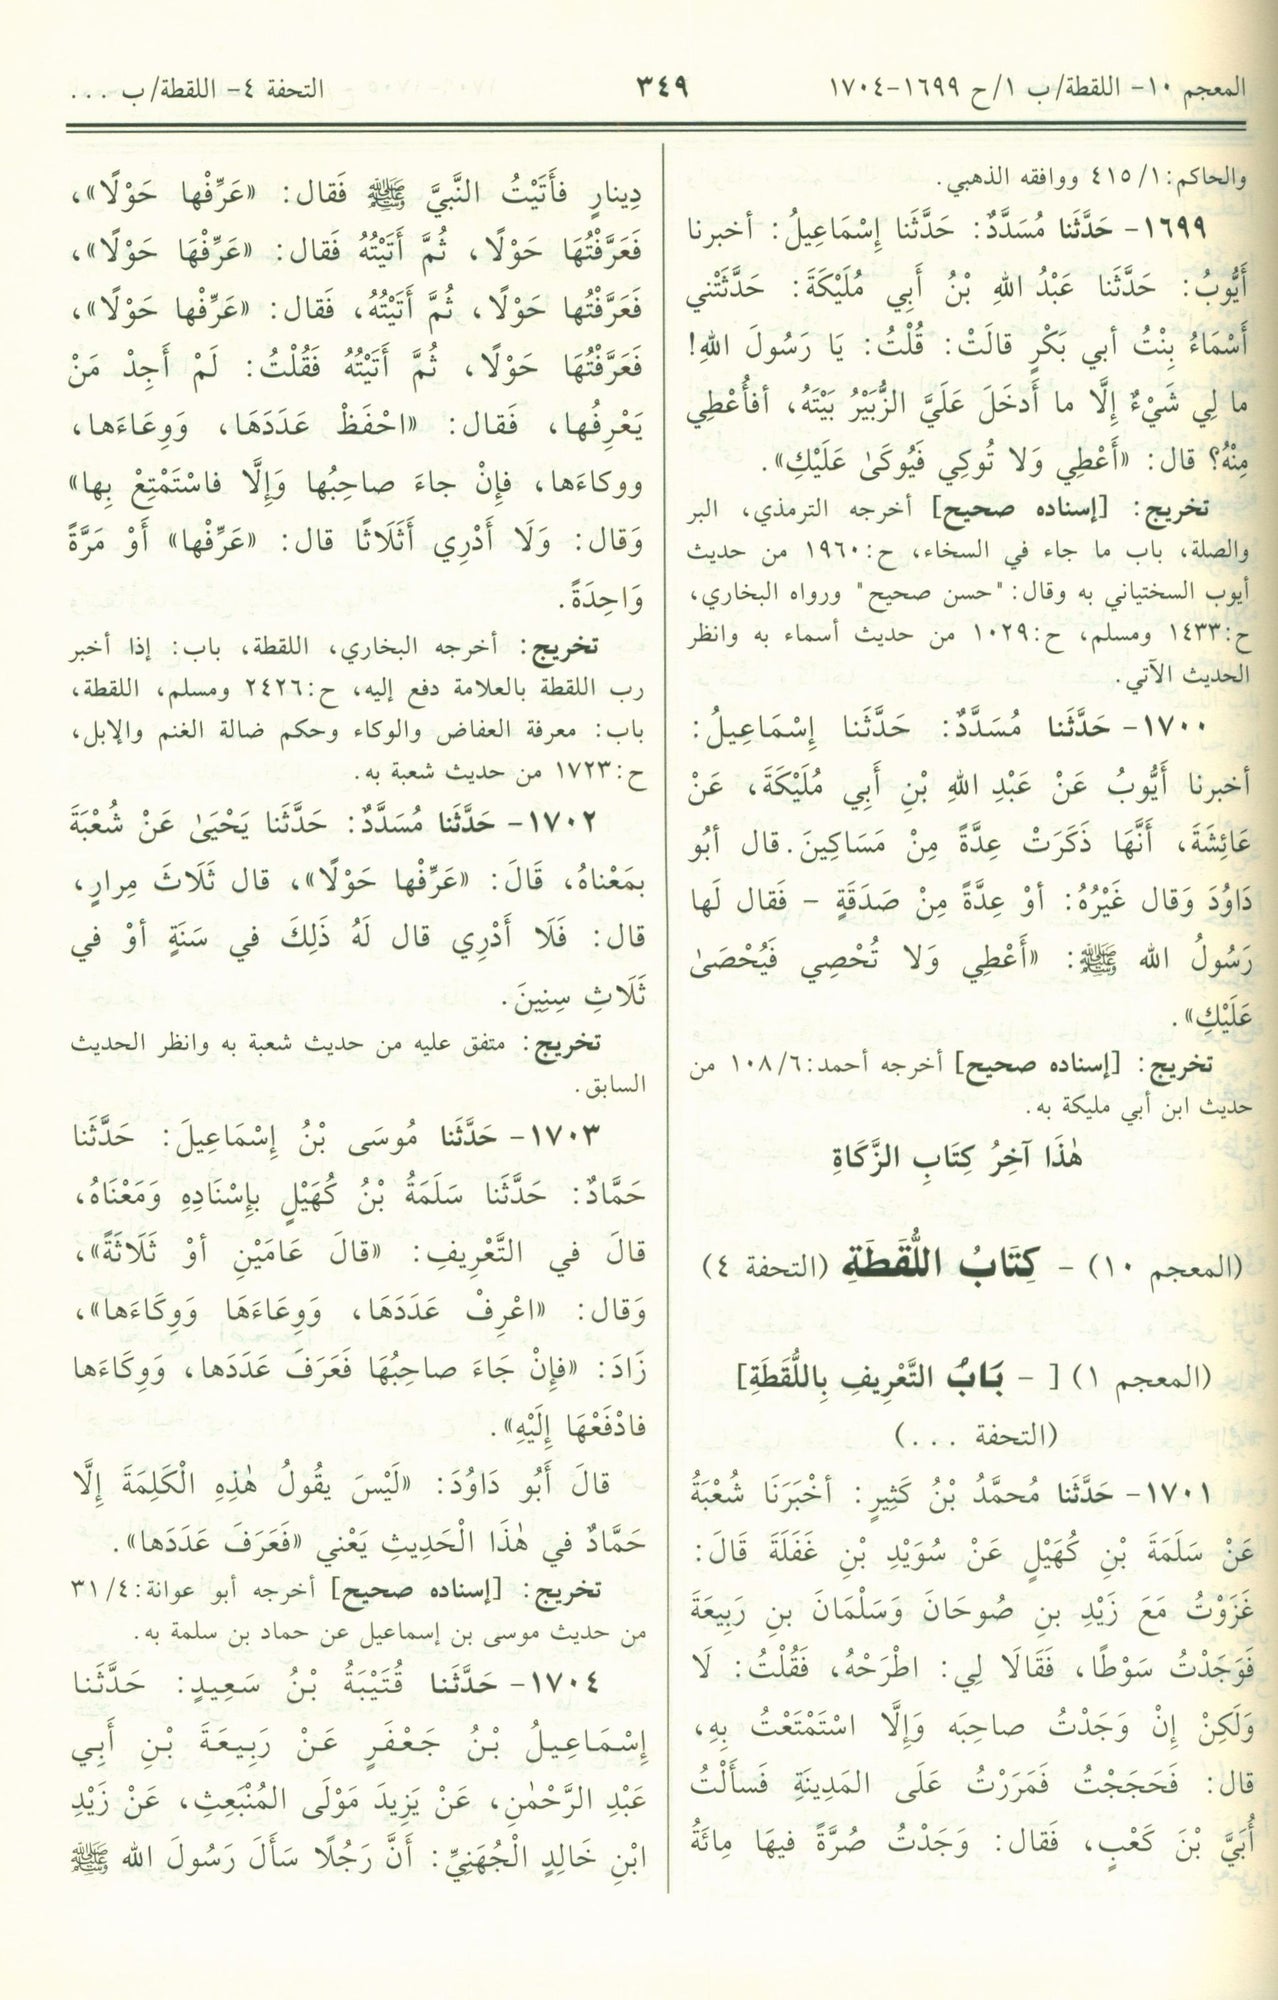 المعجم ١٠- اللقطة/ ب ١/ ح ١٦٩٩-١٧٠٤
٣٤٩
التحفة ٤- اللقطة/ ب ...
والحاكم: ١/ ٤١٥ ووافقه الذهبي.
١٦٩٩- حَدَّثَنا مُسَدَّدٌ: حَدَّثَنا إِسْمَاعِيلُ: أخبرنا
أَيُّوبُ: حَدَّثَنا عَبْدُ اللهِ بْنُ أَبِي مُلَيْكَةَ: حَدَّثَتْني
أَسْمَاءُ بِنْتُ أبي بَكْرٍ قالَتْ: قُلْتُ: يَا رَسُولَ اللهِ!
ما لِي شَيْءٌ إِلَّا ما أَدخَلَ عَلَيَّ الزُّبَيْرُ بَيْتَهُ، أفأُعْطِي
مِنْهُ؟ قال: «أَعْطِي وَلا تُوكِي فَيُوكَىٰ عَلَيْكِ».
تخريج: [إسناده صحيح] أخرجه الترمذي، البر
والصلة، باب ما جاء في السخاء، ح: ١٩٦٠ من حديث
أيوب السختياني به وقال: "حسن صحيح" ورواه البخاري،
ح: ١٤٣٣ ومسلم، ح: ١٠٢٩ من حديث أسماء به وانظر
الحديث الآتي.
١٧٠٠- حَدَّثَنا مُسَدَّدٌ: حَدَّثَنا إِسْمَاعِيلُ:
أخبرنا أَيُّوبُ عَنْ عَبْدِ اللهِ بْنِ أَبِي مُلَيْكَةَ، عَنْ
عَائِشَةَ، أَنَّهَا ذَكَرَتْ عِدَّةً مِنْ مَسَاكِينَ. قال أبُو
دَاوُدَ وَقال غَيْرُهُ: أوْ عِدَّةً مِنْ صَدَقَةٍ - فَقال لَها
رَسُولُ الله ﷺ: «أَعْطِي وَلا تُحْصِي فَيُحْصَىٰ
عَلَيْكِ».
تخريج: [إسناده صحيح] أخرجه أحمد: ٦/ ١٠٨ من
حديث ابن أبي مليكة به.
هٰذَا آخِرُ كِتَابِ الزَّكَاةِ
(المعجم ١٠) - كِتَابُ اللُّقَطَةِ (التحفة ٤)
(المعجم ١) [ - بَابُ التَّعْرِيفِ بِاللُّقَطَةِ]
(التحفة ...)
١٧٠١- حَدَّثَنا مُحمَّدُ بْنُ كَثِيرٍ: أخْبَرَنَا شُعْبَةُ
عَنْ سَلَمَةَ بْنِ كُهَيْلٍ عَنْ سُوَيْدِ بْنِ غَفَلَةَ قَالَ:
غَزَوْتُ مَعَ زَيْدِ بنِ صُوحَانَ وَسَلْمَانَ بنِ رَبِيعَةَ
فَوَجَدْتُ سَوْطًا، فَقَالَا لِي: اطْرَحْهُ، فَقُلْتُ: لَا
وَلَكِنْ إِنْ وَجَدْتُ صاحِبَه وَإِلَّا اسْتَمْتَعْتُ بِهِ،
قال: فَحَجَجْتُ فَمَرَرْتُ عَلَى المَدِينَةِ فَسأَلْتُ
أُبَيَّ بْنَ كَعْبٍ، فَقال: وَجَدْتُ صُرَّةً فيهَا مِائَةُ
دِينارٍ فأَتَيْتُ النَّبيَّ ﷺ فَقال: «عَرِّفْها حَوْلًا»،
فَعَرَّفْتُهَا حَوْلًا، ثُمَّ أَتَيْتُهُ فَقال: «عَرِّفْهَا حَوْلًا»،
فَعَرَّفْتُها حَوْلًا، ثُمَّ أَتَيْتُهُ، فَقال: «عَرِّفْها حَوْلًا»،
فَعَرَّفْتُهَا حَوْلًا، ثُمَّ أَتَيْتُهُ فَقُلْتُ: لَمْ أَجِدْ مَنْ
يَعْرِفُها، فَقال: «احْفَظْ عَدَدَهَا، وَوِعَاءَها،
ووكاءَها، فإِنْ جاءَ صاحِبُها وَإِلَّا فاسْتَمْتِعْ بِها»
وَقال: وَلَا أَدْرِي أَثَلَاثًا قال: «عَرِّفْها» أوْ مَرَّةً
وَاحِدَةً.
تخريج: أخرجه البخاري، اللقطة، باب: إذا أخبر
رب اللقطة بالعلامة دفع إليه، ح: ٢٤٢٦ ومسلم، اللقطة،
باب: معرفة العفاض والوكاء وحكم ضالة الغنم والإبل،
ح: ١٧٢٣ من حديث شعبة به.
١٧٠٢- حَدَّثَنا مُسَدَّدٌ: حَدَّثَنا يَحْيَىٰ عَنْ شُعْبَةَ
بمَعْناهُ، قَالَ: «عَرِّفْها حَوْلًا»، قال ثَلَاثَ مِرارٍ،
قال: فَلَا أَدْرِي قال لَهُ ذَلِكَ في سَنَةٍ أوْ في
ثَلَاثِ سِنِينَ.
تخريج: متفق عليه من حديث شعبة به وانظر الحديث
السابق.
١٧٠٣- حَدَّثَنا مُوسَى بْنُ إِسْمَاعِيلَ: حَدَّثَنا
حَمَّادٌ: حَدَّثَنا سَلَمَةُ بْنُ كُهَيْلٍ بإِسْنَادِهِ وَمَعْنَاهُ،
قالَ في التَّعْرِيفِ: «قالَ عَامَيْنِ أوْ ثَلَاثَةً»،
وَقال: «اعْرِفْ عَدَدَهَا، وَوِعَاءَهَا وَوِكَاءَها»،
زَادَ: «فإِنْ جَاءَ صاحِبُهَا فَعَرَفَ عَدَدَها، وَوِكَاءَها
فادْفَعْهَا إِلَيْهِ».
قالَ أَبُو دَاوُدَ: «لَيْسَ يقُولُ هٰذِهِ الْكَلِمَةَ إِلَّا
حَمَّادٌ في هٰذَا الْحَدِيثِ يَعْني «فَعَرَفَ عَدَدَها».
تخريج: [إسناده صحيح] أخرجه أبو عوانة: ٤/ ٣١
من حديث موسى بن إسماعيل عن حماد بن سلمة به.
١٧٠٤- حَدَّثَنا قُتَيْبَةُ بْنُ سَعِيدٍ: حَدَّثَنا
إِسْمَاعِيلُ بْنُ جَعْفَرٍ عَنْ رَبِيعَةَ بْنِ أَبِي
عَبْدِ الرَّحْمٰنِ، عَنْ يَزِيدَ مَوْلَى المُنْبَعِثِ، عَنْ زَيْدِ
ابْنِ خَالِدٍ الْجُهَنِيِّ: أَنَّ رَجُلًا سَأَلَ رَسُولَ الله ﷺ